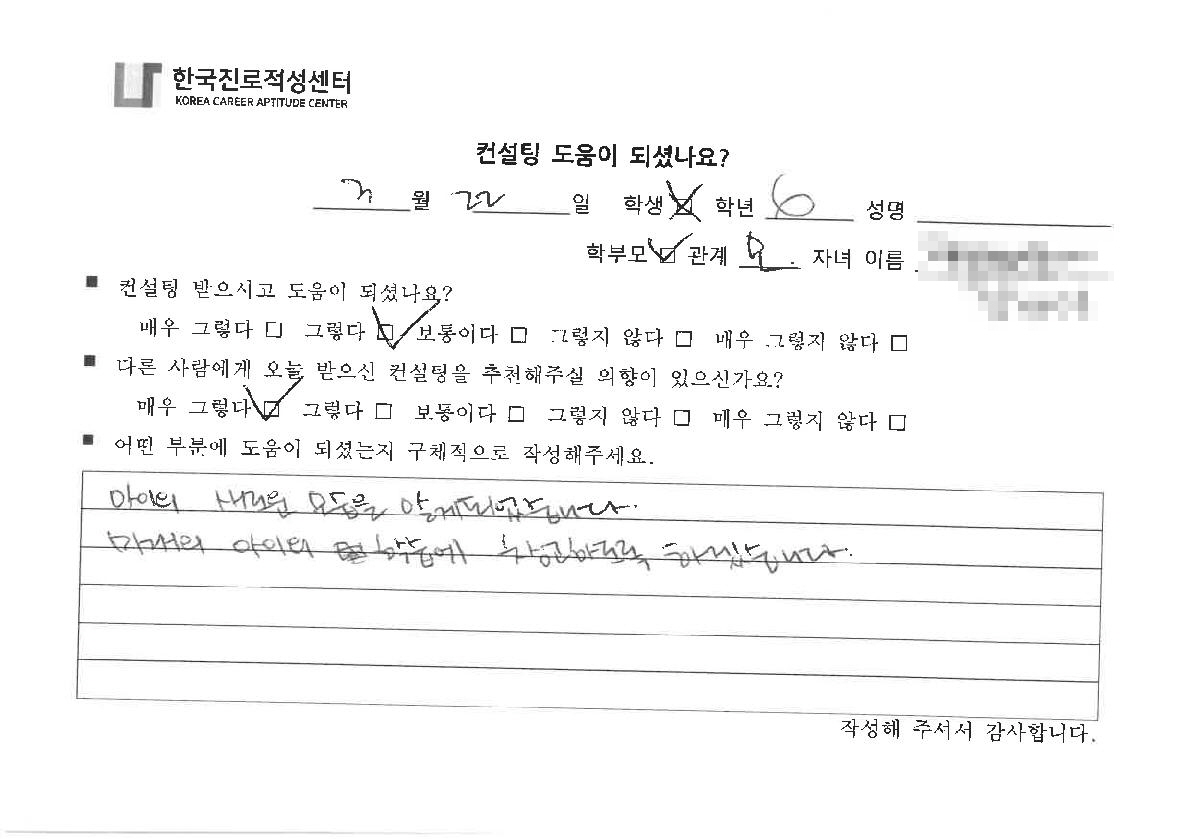 한국진로적성센터
KOREA CAREER APTITUDE CENTER
컨설팅 도움이 되셨나요?
월 22 일 학생 학년 6 성명
학부모 관계 모. 자녀 이름
컨설팅 받으시고 도움이 되셨나요?
매우 그렇다 □ 그렇다 □ 보통이다 □ 그렇지 않다 □ 매우 그렇지 않다 □
다른 사람에게 오늘 받으신 컨설팅을 추천해주실 의향이 있으신가요?
매우 그렇다 □ 그렇다 □ 보통이다 □ 그렇지 않다 □ 매우 그렇지 않다 □
어떤 부분에 도움이 되셨는지 구체적으로 작성해주세요.
아이의 새로운 모습을 알게되었습니다.
아이의 학습에 참고하도록 하겠습니다.
작성해 주셔서 감사합니다.